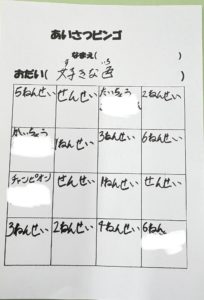 あいさつビンゴ
なまえ( )
おだい( 好きな色 )
す いろ
5ねんせい せんせい たいちょう 2ねんせい
かいちょう 1ねんせい 3ねんせい 6ねんせい
チャンピオン せんせい 1ねんせい せんせい
3ねんせい 2ねんせい 4ねんせい 6ねん